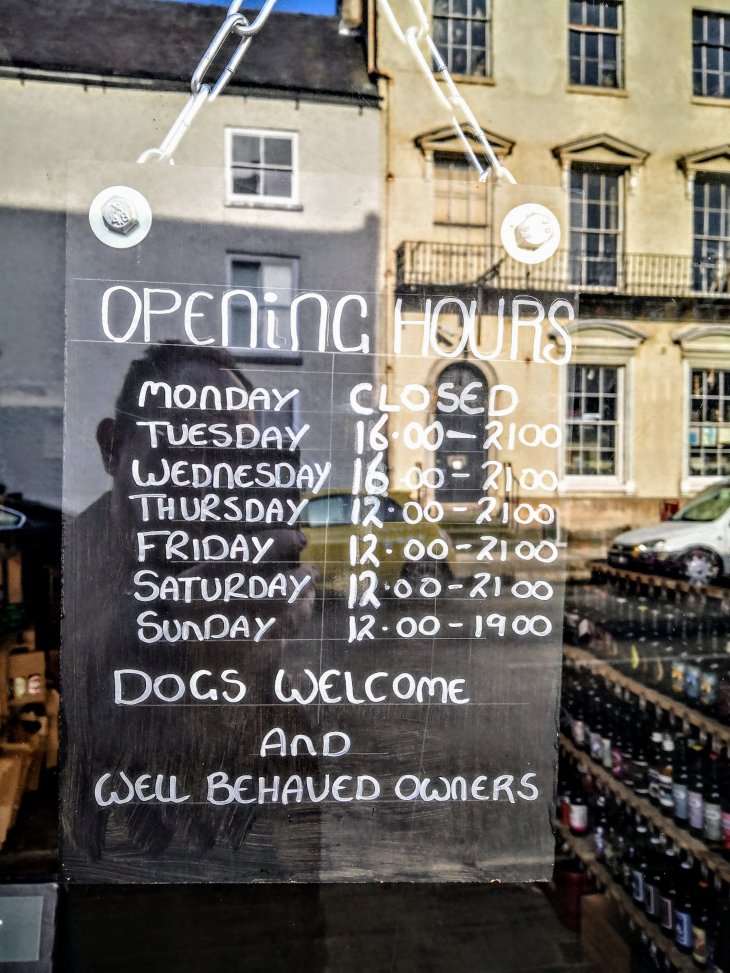 OPENING HOURS
MONDAY CLOSED
TUESDAY 16.00-2100
WEDNESDAY 16.00-21.00
THURSDAY 12.00-2100
FRIDAY 12.00-2100
SATURDAY 12.00-2100
SUNDAY 12.00-1900
DOGS WELCOME
AND
WELL BEHAVED OWNERS